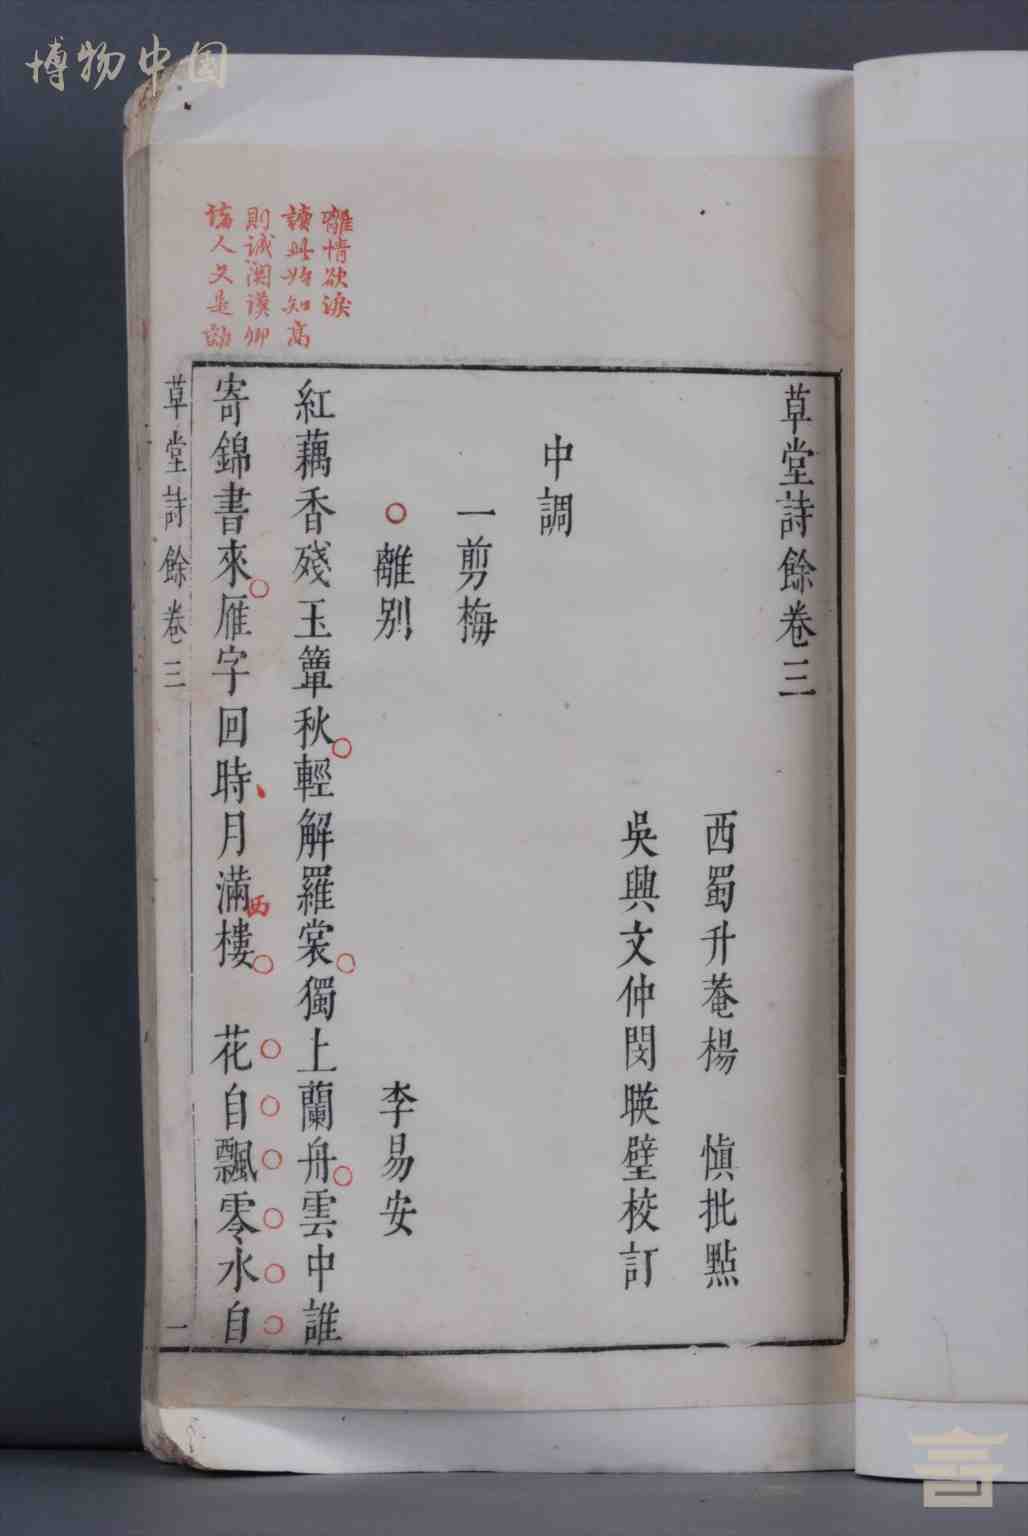 博物中国
草堂詩餘卷三
西蜀升菴楊 慎批點
吳興文仲閔暎璧校訂
中調
一剪梅
離別 李易安
紅藕香殘玉簟秋輕解羅裳獨上蘭舟雲中誰
寄錦書來雁字回時月滿西樓 花自飄零水自
草堂詩餘卷三 一
離情欲淚
讀此始知高
則誠関漢卿
諸人又是